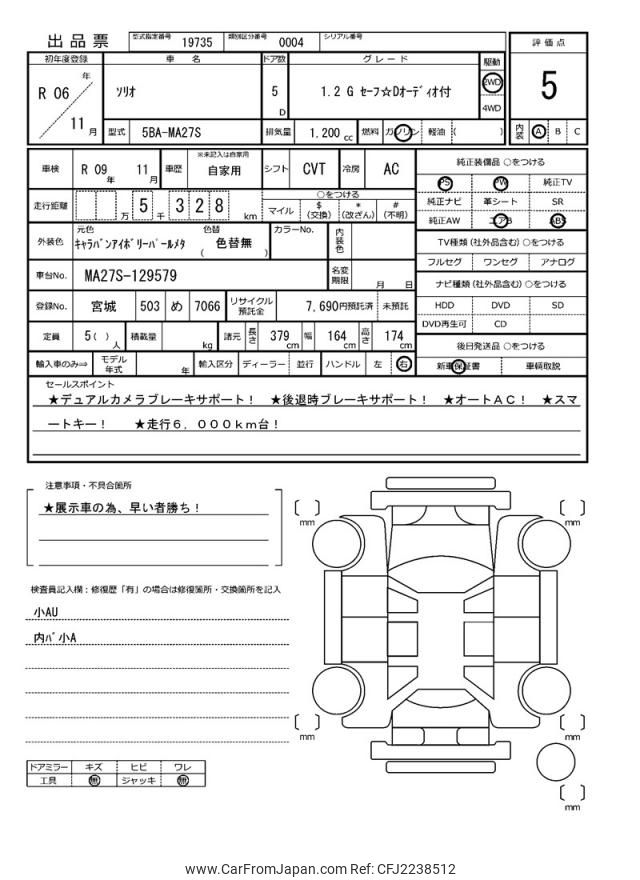 出品票 型式指定番号 19735 類別区分番号 0004 シリアル番号
初年度登録 車名 ドア数 グレード 駆動 評価点
R 06 年 11 月 ソリオ 5 D 1.2 G セーフ☆Dオーディオ付 2WD 4WD 5
型式 5BA-MA27S 排気量 1.200 cc 燃料 ガソリン 軽油 ( ) 内装 A B C
車検 R 09 年 11 月 車歴 ※未記入は自家用 自家用 シフト CVT 冷房 AC
純正装備品 ○をつける
PS PW 純正TV
純正ナビ 革シート SR
純正AW エアB ABS
走行距離 万 5 千 3 2 8 km ○をつける マイル $ (交換) * (改ざん) # (不明)
外装色 元色 キャラバンアイボリーパールメタ 色替 ( 色替無 ) カラーNo. 内装色
TV種類 (社外品含む) ○をつける
フルセグ ワンセグ アナログ
車台No. MA27S-129579 名変期限 月 日
ナビ種類 (社外品含む) ○をつける
HDD DVD SD
DVD再生可 CD
登録No. 宮城 503 め 7066 リサイクル預託金 7,690円預託済 未預託
定員 5( ) 人 積載量 kg 諸元 長さ 379 cm 幅 164 cm 高さ 174 cm
後日発送品 ○をつける
新車保証書 車輌取説
輸入車のみ⇒ モデル年式 年 輸入区分 ディーラー 並行 ハンドル 左 右
セールスポイント
★デュアルカメラブレーキサポート! ★後退時ブレーキサポート! ★オートAC! ★スマ
ートキー! ★走行6,000km台!
注意事項・不具合箇所
★展示車の為、早い者勝ち!
検査員記入欄:修復歴「有」の場合は修復箇所・交換箇所を記入
小AU
内バ小A
mm
mm
mm
mm
mm
ドアミラー キズ ヒビ ワレ
工具 無 ジャッキ 無
www.CarFromJapan.com Ref: CFJ2238512